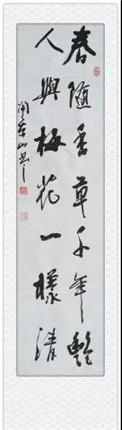 春随香草千年艳
人與梅花一樣清